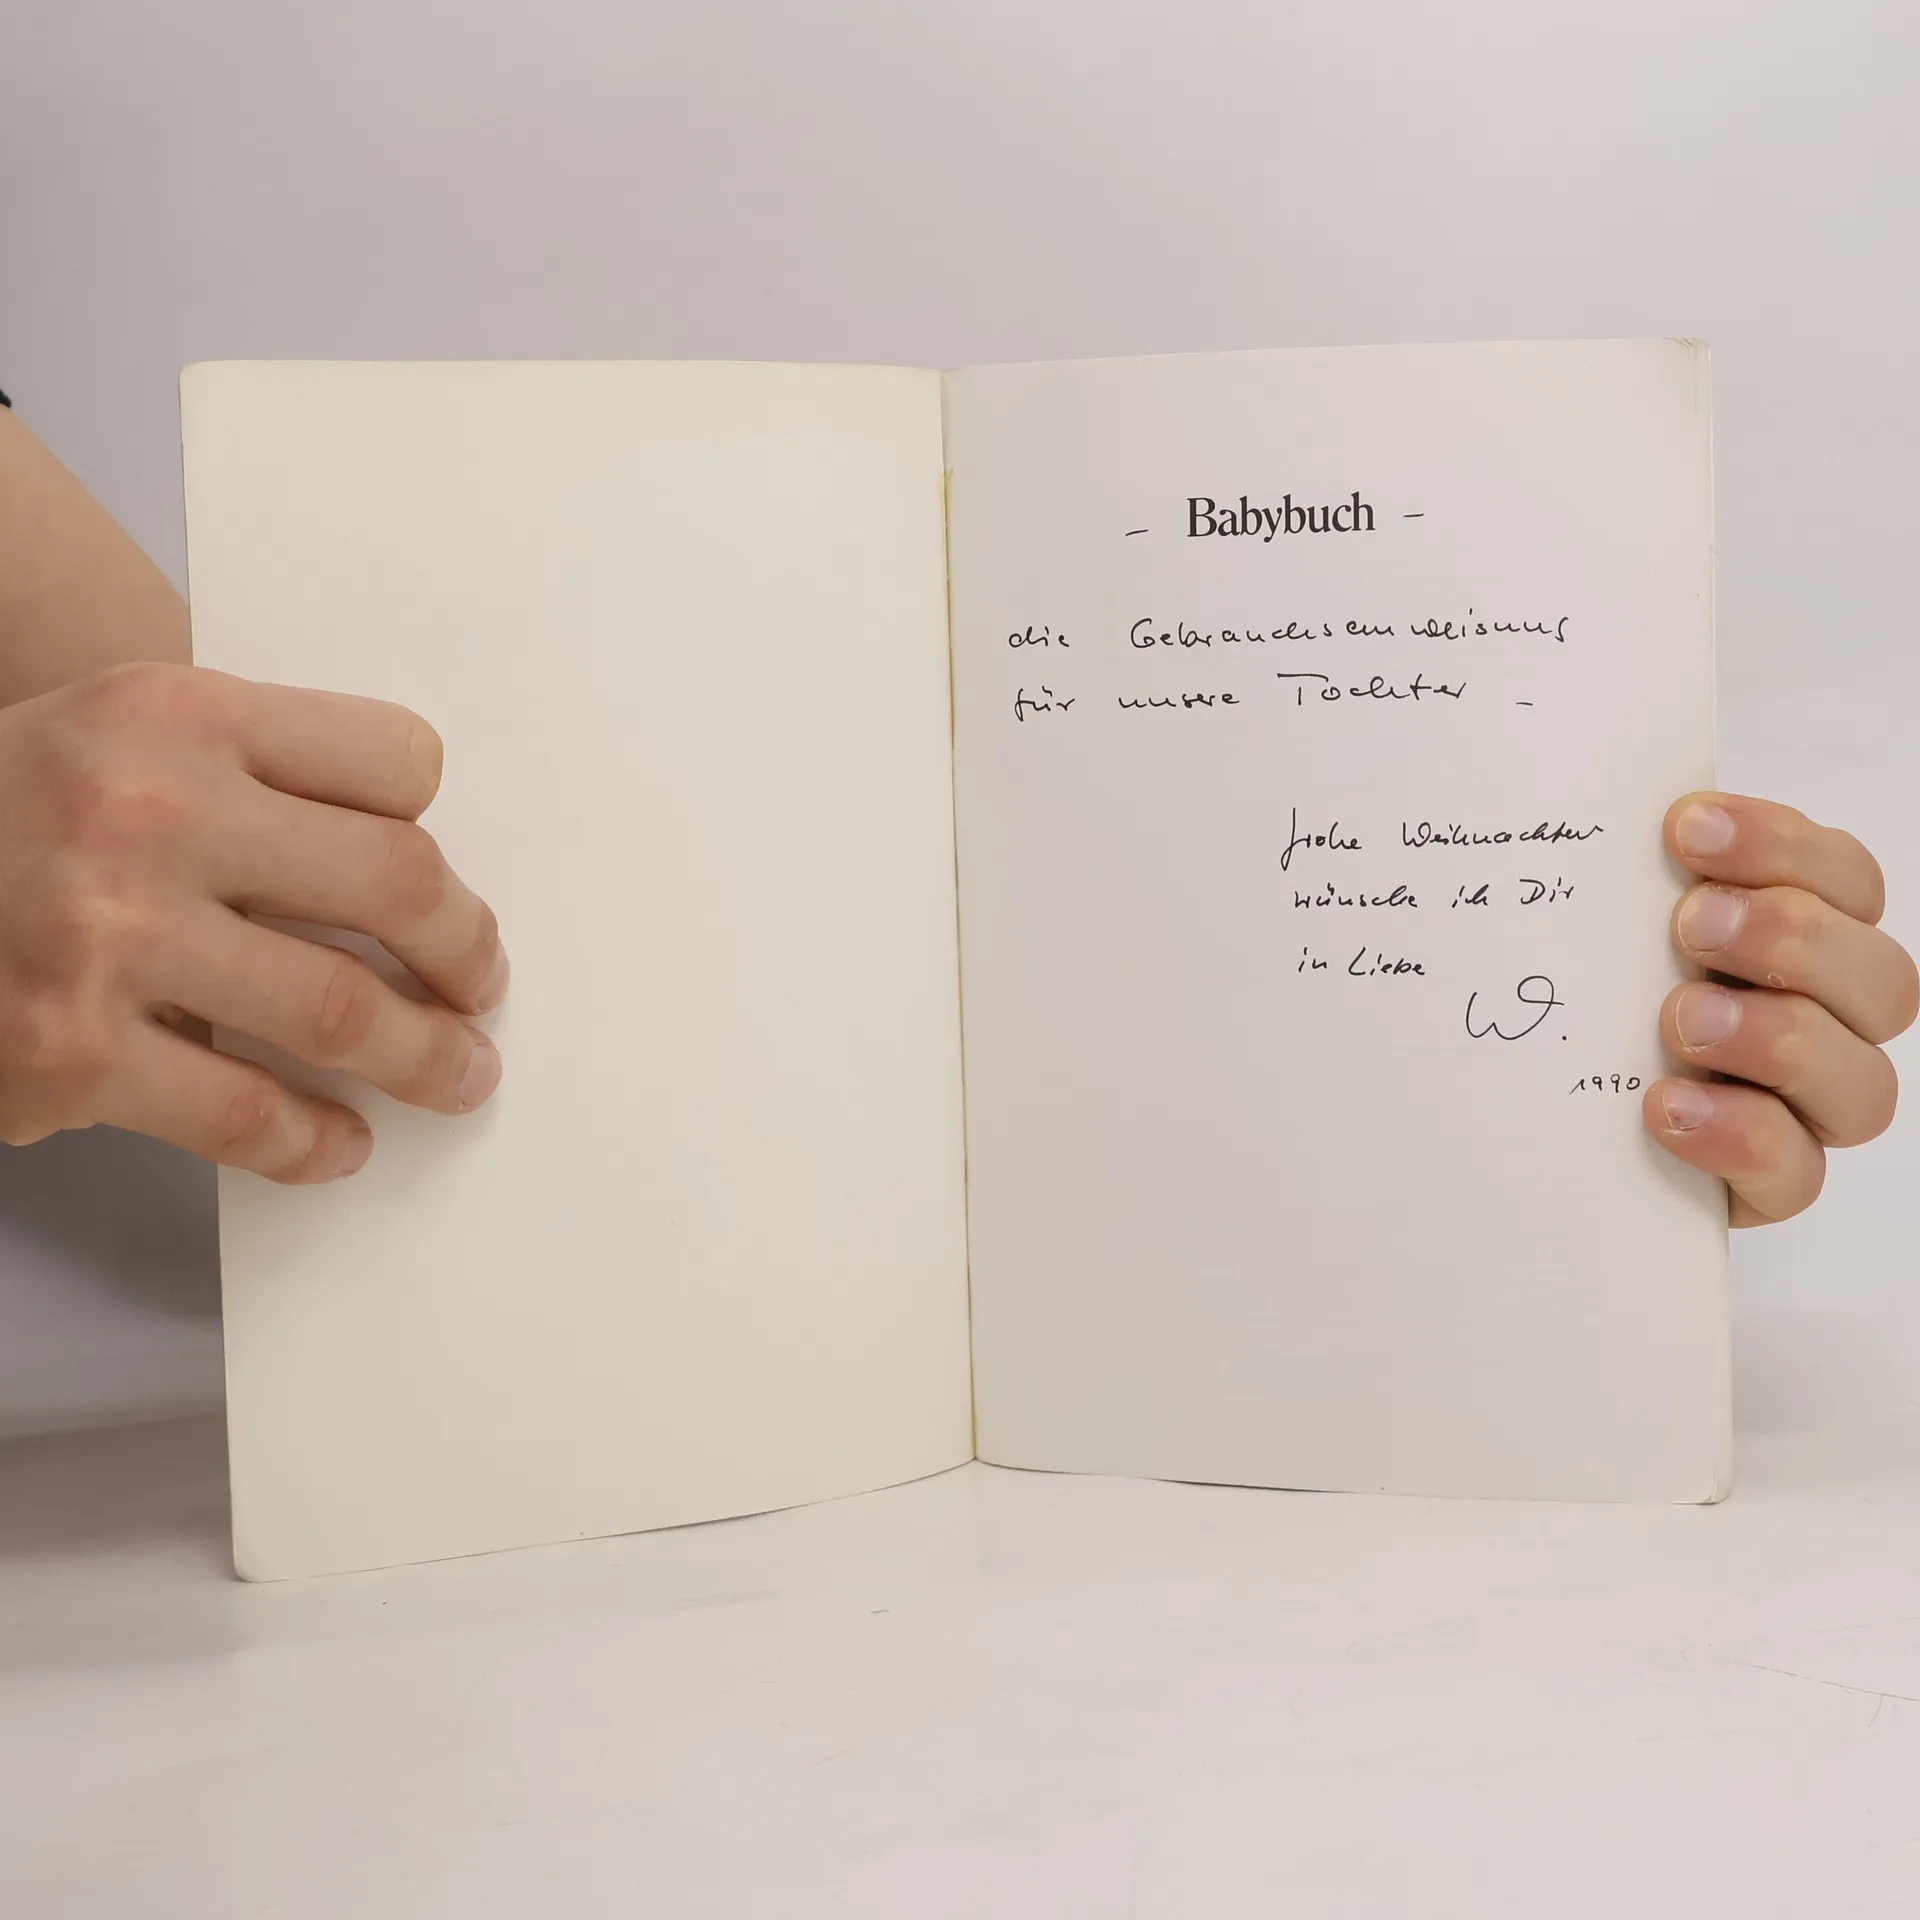 - Babybuch -
die Gebrauchsanweisung
für unsere Tochter -
frohe Weihnachten
wünsche ich Dir
in Liebe
W.
1990